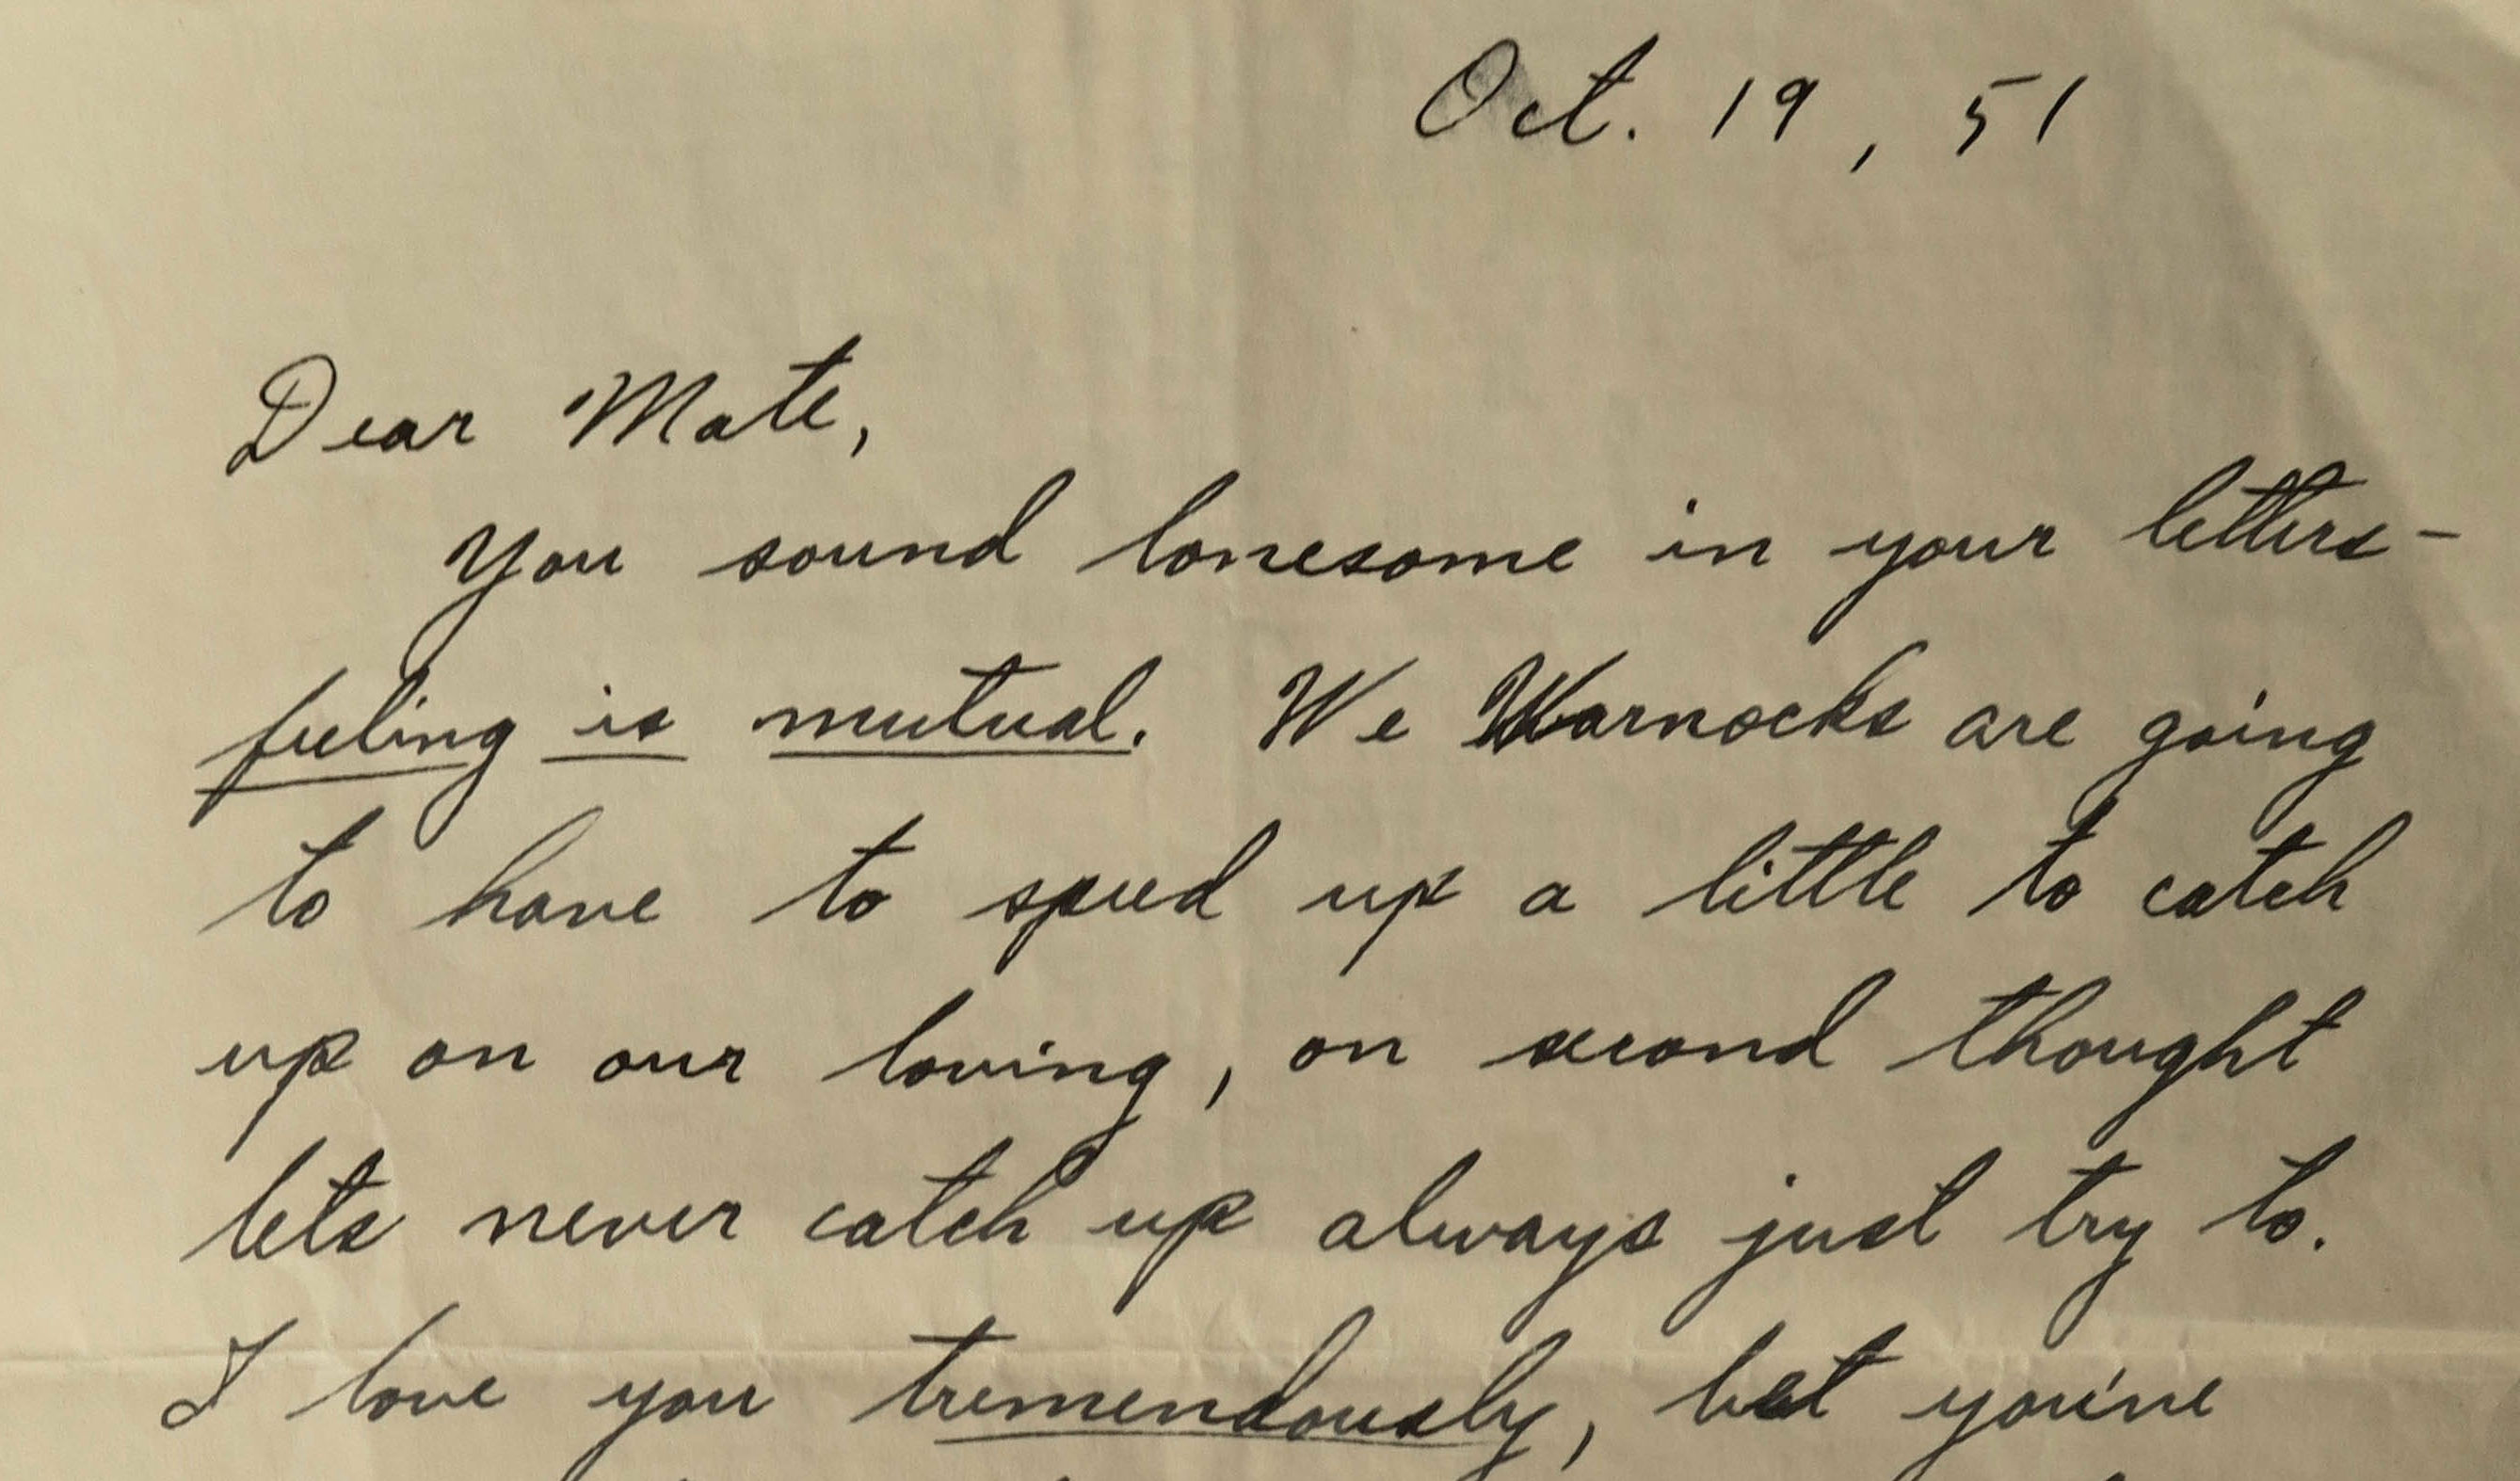 Oct. 19, 51
Dear Mate,
You sound lonesome in your letters-
feeling is mutual. We Warnocks are going
to have to speed up a little to catch
up on our loving, on second thought
lets never catch up always just try to.
I love you tremendously, bet you've